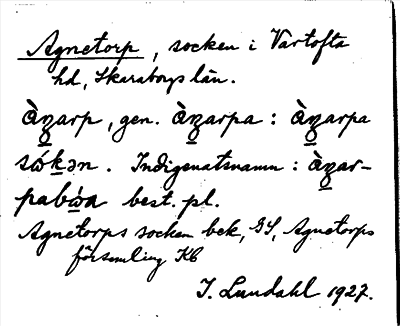 Agnetorp, socken i Vartofta
hd, Skaraborgs län.
àn̠arp, gen. àn̠arpa : àn̠arpa
sώk̠ən. Indigenatsnamn : àn̠ar-
pabω̠a best. pl.
Agnetorps socken bek, GS, Agnetorps
församling Kb
I. Lundahl 1927.